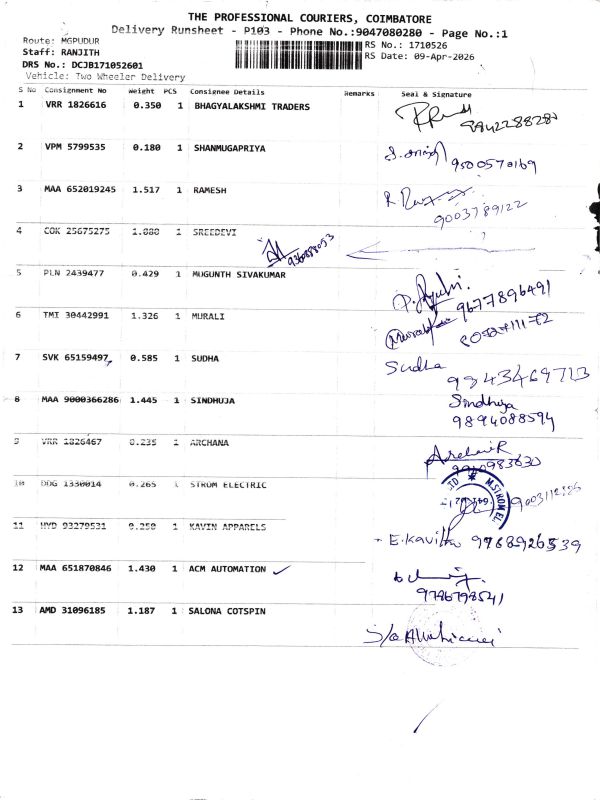 THE PROFESSIONAL COURIERS, COIMBATORE
Delivery Runsheet - P103 - Phone No.:9047080280 - Page No.:1
Route: MGPUDUR
Staff: RANJITH
DRS No.: DCJB171052601
Vehicle: Two Wheeler Delivery
RS No.: 1710526
RS Date: 09-Apr-2026
S No Consignment No Weight PCS Consignee Details Remarks Seal & Signature
1 VRR 1826616 0.350 1 BHAGYALAKSHMI TRADERS
2 VPM 5799535 0.180 1 SHANMUGAPRIYA 9500570169
3 MAA 652019245 1.517 1 RAMESH 9003789122
4 COK 25675275 1.080 1 SREEDEVI
5 PLN 2439477 0.429 1 MUGUNTH SIVAKUMAR 9677896491
6 TMI 30442991 1.326 1 MURALI
7 SVK 65159497 0.585 1 SUDHA Sudha 9843469713
8 MAA 9000366286 1.445 1 SINDHUJA Sindhuja 9894088594
9 VRR 1826467 0.235 1 ARCHANA
10 DDG 1330014 0.265 1 STROM ELECTRIC
11 HYD 93279531 0.250 1 KAVIN APPARELS E.Kavitha 9768926539
12 MAA 651870846 1.430 1 ACM AUTOMATION 9786798541
13 AMD 31096185 1.187 1 SALONA COTSPIN